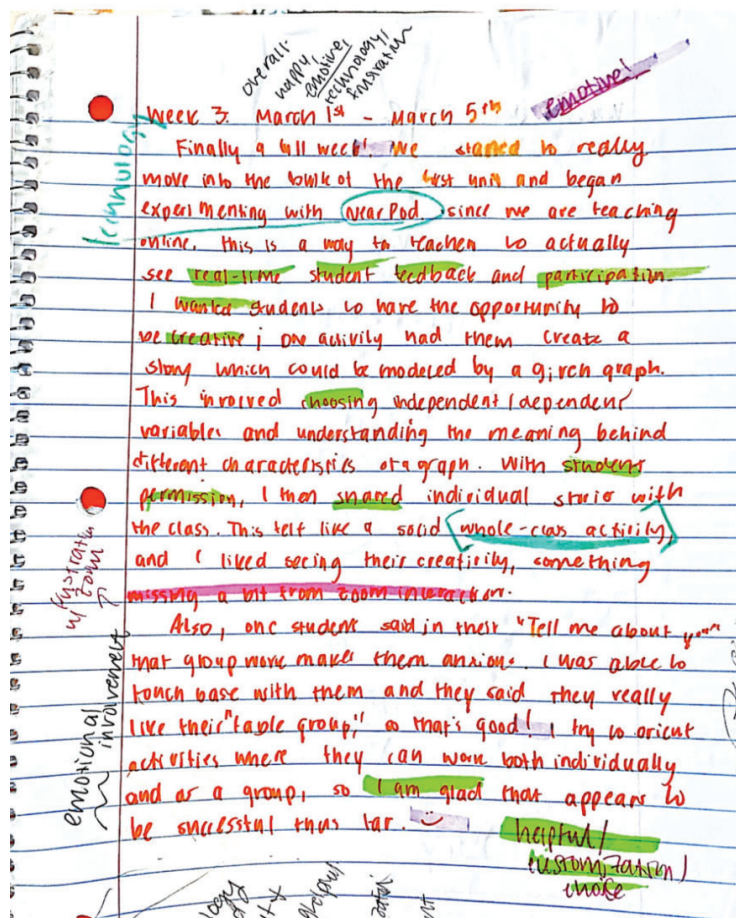 overall
happy,
emotive,
technology,
frustration
emotive!
Week 3: March 1st - March 5th
Finally a full week! We started to really
move into the bulk of the first unit and began
experimenting with NearPod. since we are teaching
online, this is a way to teachen to actually
see real-time student feedback and participation.
I wanted students to have the opportunity to
be creative; one activity had them create a
story which could be modeled by a given graph.
This involved choosing independent/dependent
variables and understanding the meaning behind
different characteristics of a graph. With students
permission, I then shared individual stories with
the class. This felt like a solid [whole-class activity],
and I liked seeing their creativity, something
missing a bit from zoom interaction.
Also, one student said in their "Tell me about you"
that group work makes them anxious. I was able to
touch base with them and they said they really
like their "table group," so that's good! I try to orient
activities where they can work both individually
and as a group, so I am glad that appears to
be successful thus far.
technology
frustration
w/ zoom
emotional
involvement
helpful/
customization/
choice